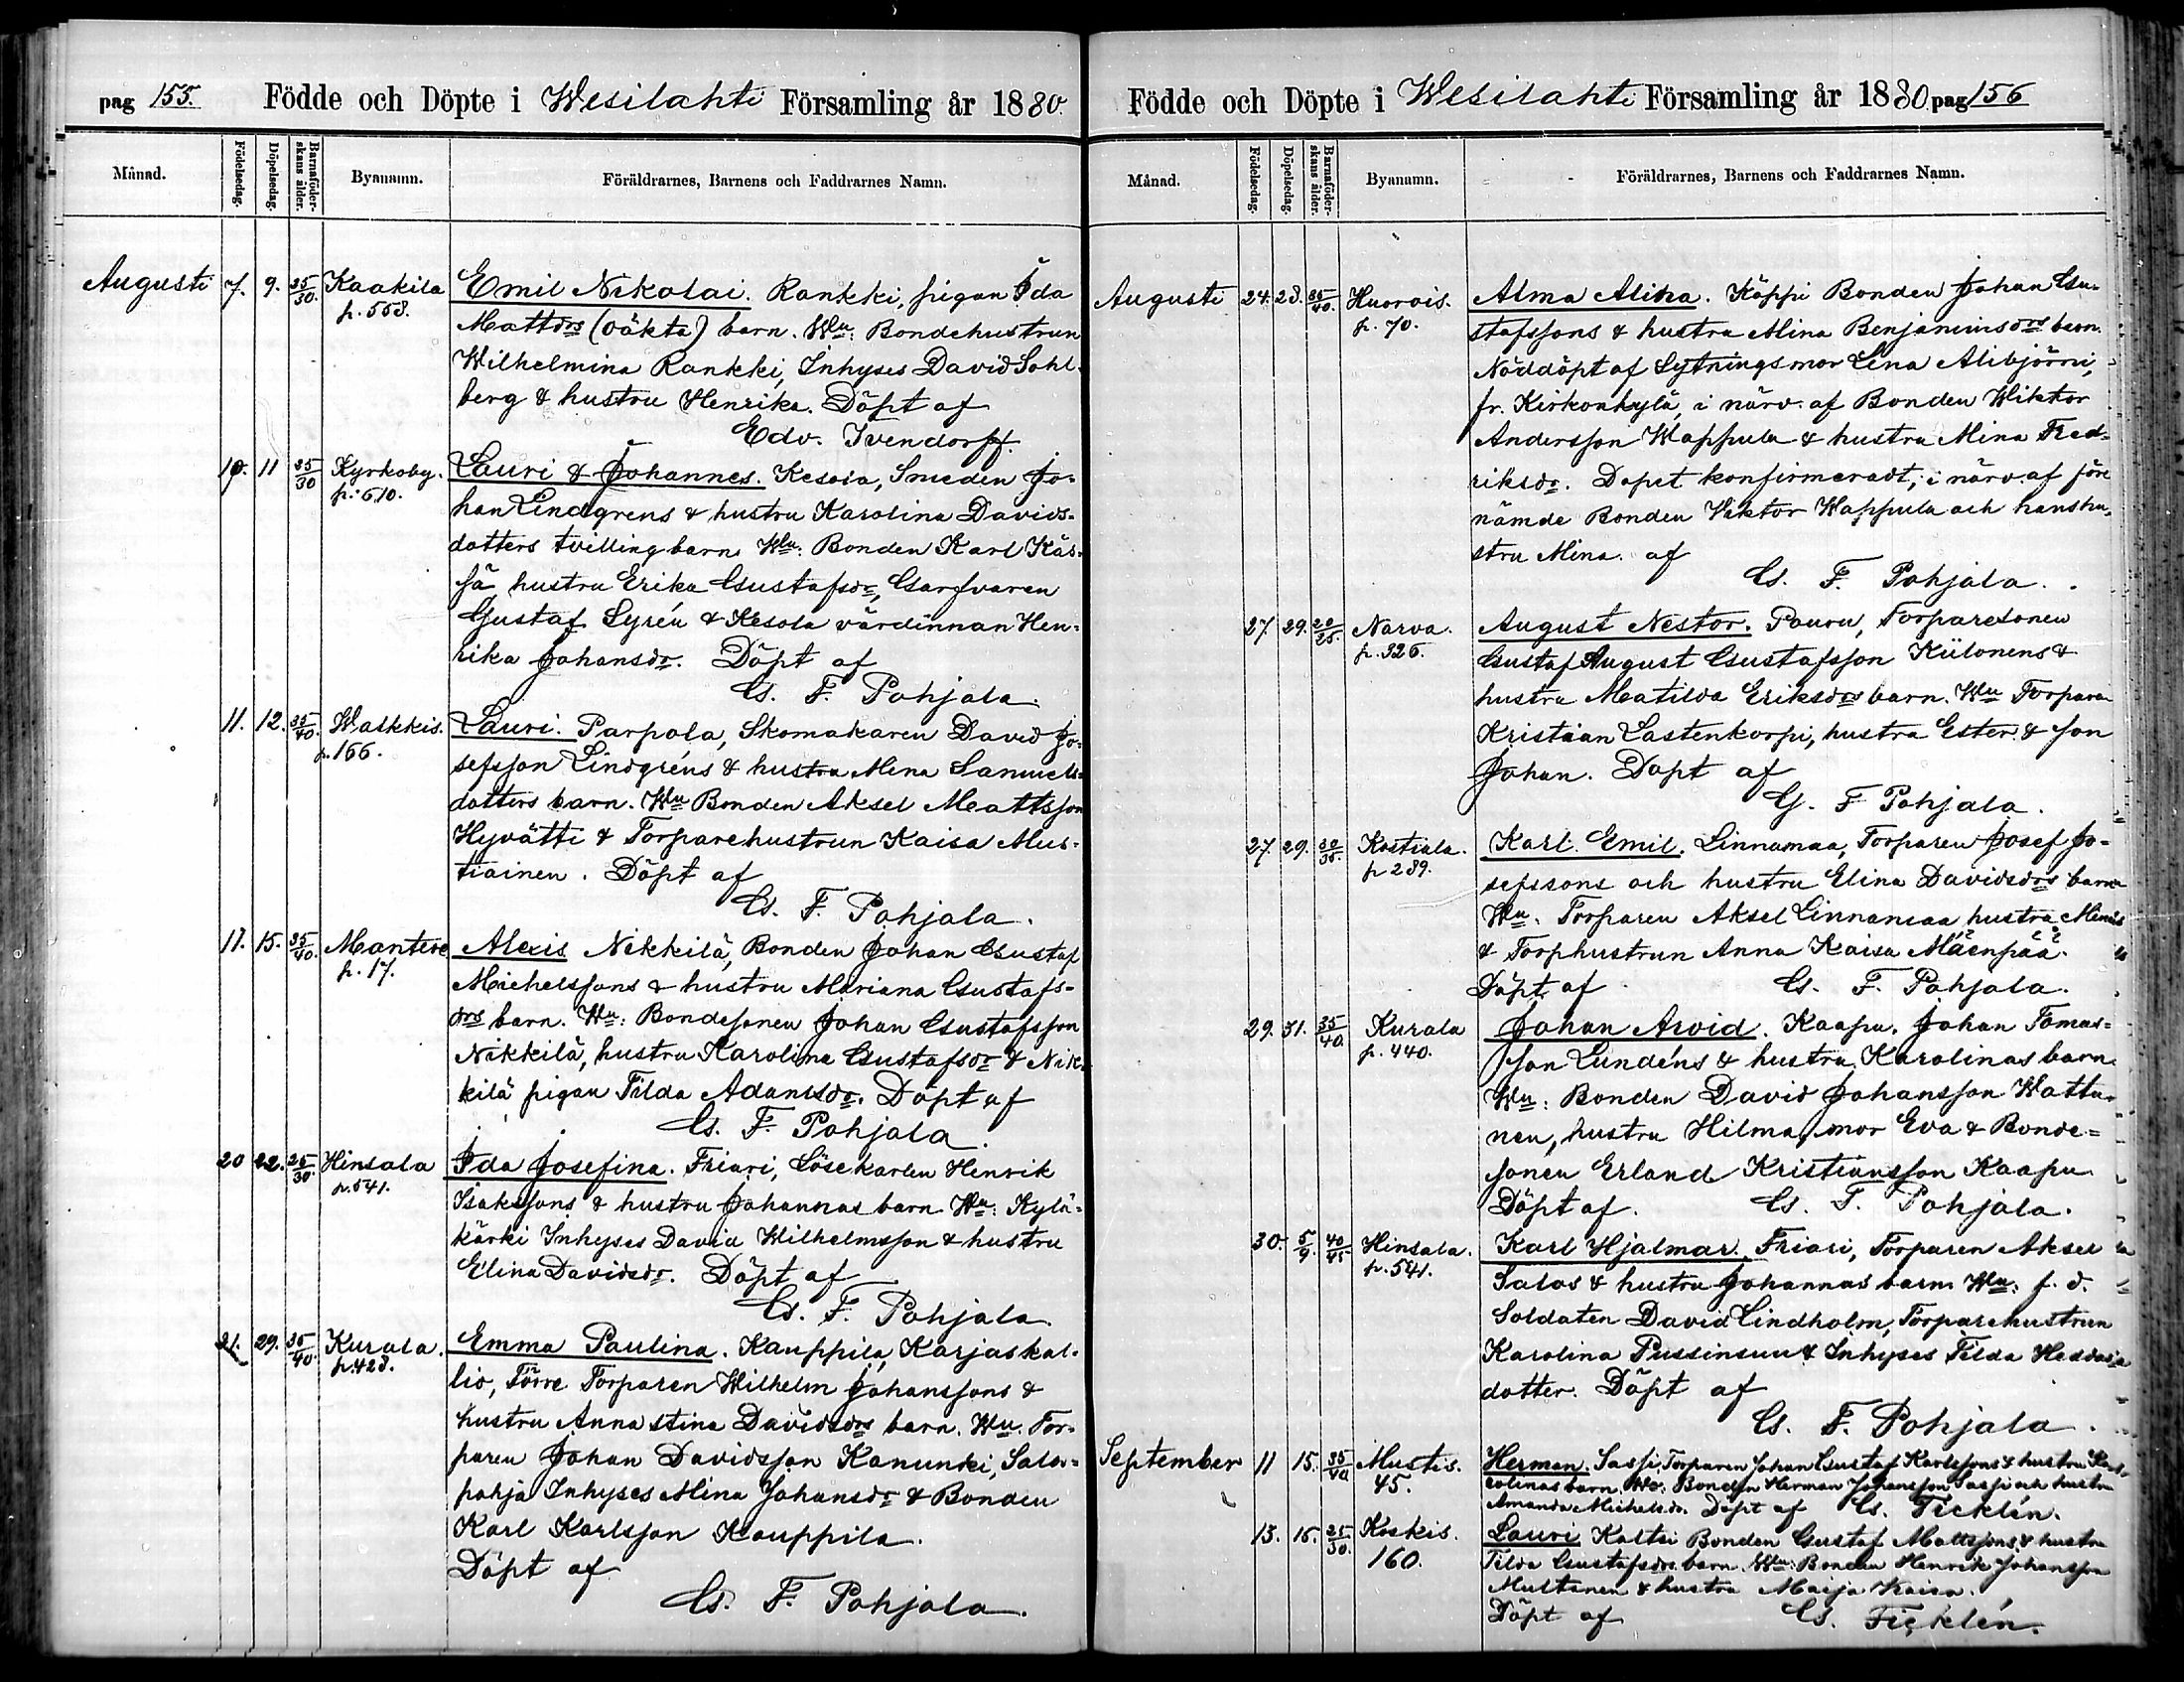 pag 155. Födde och Döpte i Wesilahti Församling år 1880.
Månad. Födelsedag. Döpelsedag. Barnaföderskans ålder. Byanamn. Föräldrarnes, Barnens och Faddrarnes Namn.
Augusti 7. 9. 35/30. Kaakila Emil Nikolai. Rankki, pigan Ida
p. 558. Mattdrs (oäkta) barn. Wn: Bondehustrun
Wilhelmina Rankki, Inhyses David Sohl-
berg & hustru Henrika. Döpt af
Edv. Ivendorff.
10. 11 35/30 Kyrkoby. Lauri & Johannes. Kesola, Smeden Jo-
p. 610. han Lindgrens & hustru Karolina Davids-
dotters tvillingbarn. Wn: Bonden Karl Käs-
sä, hustru Erika Gustafsdr, Garfvaren
Gustaf Syrén & Kesola värdinnan Hen-
rika Johansdr. Döpt af
G. F. Pohjala.
11. 12. 35/40. Walkkis. Lauri. Parpola, Skomakaren David Jo-
p. 166. sefsson Lindgréns & hustru Mina Samuels-
dotters barn. Wn Bonden Aksel Mattsson
Hyvätti & Torparehustrun Kaisa Mus-
tiainen. Döpt af
G. F. Pohjala.
11. 15. 35/40. Mantere Alexis Nikkilä, Bonden Johan Gustaf
p. 17. Michelssons & hustru Mariana Gustafs-
drs barn. Wn: Bondesonen Johan Gustafsson
Nikkilä, hustru Karolina Gustafsdr & Nik-
kilä pigan Tilda Adamsdr. Döpt af
G. F. Pohjala.
20 22. 25/30. Hinsala Ida Josefina. Friari, Lösekarlen Henrik
p. 541. Isakssons & hustru Johannas barn. Wn: Kylä-
kärki Inhyses David Wilhelmsson & hustru
Elina Davidsdr. Döpt af
G. F. Pohjala
21. 29. 35/40. Kurala. Emma Paulina. Kauppila, Karjaskal-
p. 428. lio, Förre Torparen Wilhelm Johanssons &
hustru Anna Stina Davidsdrs barn. Wn. Tor-
paren Johan Davidsson Kanunki, Salon-
pohja Inhyses Mina Johansdr & Bonden
Karl Karlsson Kauppila.
Döpt af
G. F. Pohjala.
Födde och Döpte i Wesilahti Församling år 1880. pag 156
Månad. Födelsedag. Döpelsedag. Barnaföderskans ålder. Byanamn. Föräldrarnes, Barnens och Faddrarnes Namn.
Augusti 24. 28. 35/40. Huorois. Alma Alina. Köppi Bonden Johan Gu-
p. 70. stafssons & hustru Mina Benjaminsdrs barn.
Nöddöpt af Lytningsmor Lena Alibjörni,
fr. Kirkonkylä, i närv. af Bonden Wiktor
Andersson Wappula & hustru Mina Fred-
riksdr. Dopet konfirmeradt, i närv. af före
nämde Bonden Viktor Wappula och hans hu-
stru Mina. af
G. F. Pohjala.
27. 29. 20/25. Narva. August Nestor. Pouru, Torparesonen
p. 326. Gustaf August Gustafsson Kiilonens &
hustru Matilda Eriksdrs barn. Wn Torparen
Kristian Lastenkorpi, hustru Ester & son
Johan. Döpt af
G. F Pohjala.
27. 29. 30/35. Kostiala. Karl Emil. Linnamaa, Torparen Josef Jo-
p 289. sefssons och hustru Elina Davidsdrs barn
Wn. Torparen Aksel Linnamaa hustru Mina
& Torphustrun Anna Kaisa Mäenpää.
Döpt af G. F. Pohjala.
29. 31. 35/40. Kurala Johan Arvid. Kaapu. Johan Tomas-
p. 440. son Lundéns & hustru Karolinas barn.
Wn: Bonden David Johansson Wattu-
nen, hustru Hilma, mor Eva & Bonde-
sonen Erland Kristiansson Kaapu
Döpt af. G. F. Pohjala.
30. 5/9. 40/45. Hinsala. Karl Hjalmar. Friari, Torparen Aksel
p. 541. Salos & hustru Johannas barn. Wn: f. d.
Soldaten David Lindholm, Torparehustrun
Karolina Pussinsuu & Inhyses Tilda
dotter. Döpt af
G. F. Pohjala.
September 11 15. 35/40 Mustis. Herman. Sassi, Torparen Johan Gustaf Karlssons & hustru Ka-
45. rolinas barn. Wn: Bonden Herman Johansson Sassi och hustru
Amanda Michelsdr. Döpt af G. Ficklén.
13. 15. 25/30. Koskis. Lauri Kaltsi Bonden Gustaf Mattssons & hustru
160. Tilda Gustafsdrs barn. Wn: Bonden Henrik Johansson
Multanen & hustru Maija Kaisa.
Döpt af G. Ficklén.